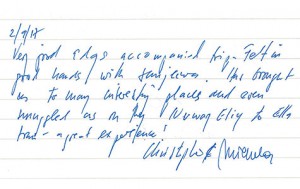 2/1/18
Very good 2 days accompanied trip. Felt in
good hands with Sanjeewa. He brought
us to many interesting places and even
smuggled us on the Nuwara Eliy to Ella
train - a great experience!
Christoph &